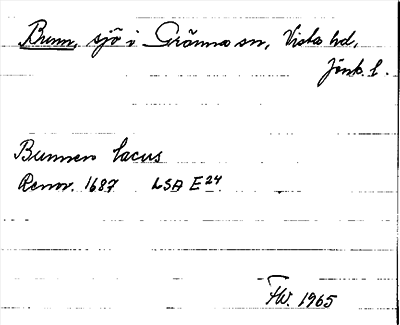 Bunn, sjö i Gränna sn, Vista hd,
Jönk. l.
Bunnen lacus
Renov. 1687 LSA E 24
FW. 1965